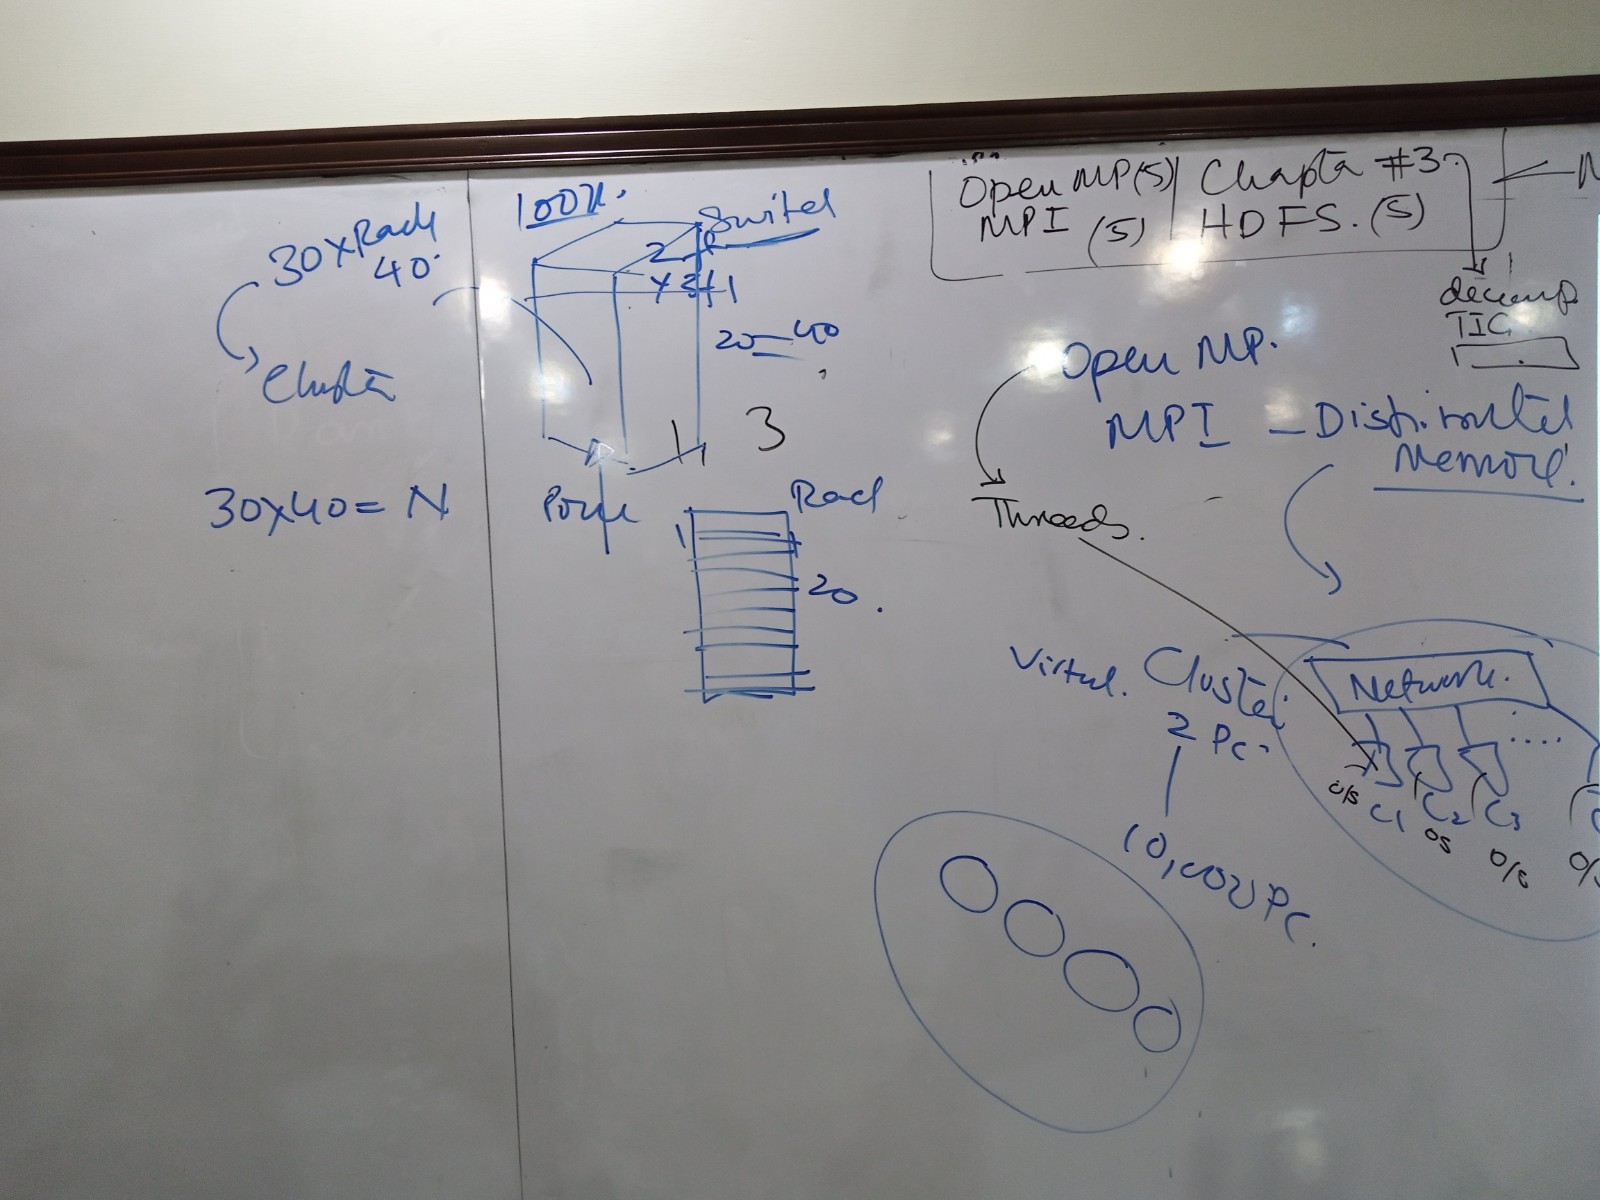 30xRack
40.
Cluster
30x40 = N
100%.
Switch
2
x3+1
20—40
1 3
Rack
1
20.
Open MP(5)
MPI (5)
Chapter #3.
HDFS. (5)
TIC
Open MP.
MPI — Distributed
Memory.
Threads.
Virtual. Cluster
2 PC.
10,000 PC.
Network.
....
O/S
C1
C2
OS
C3
O/S